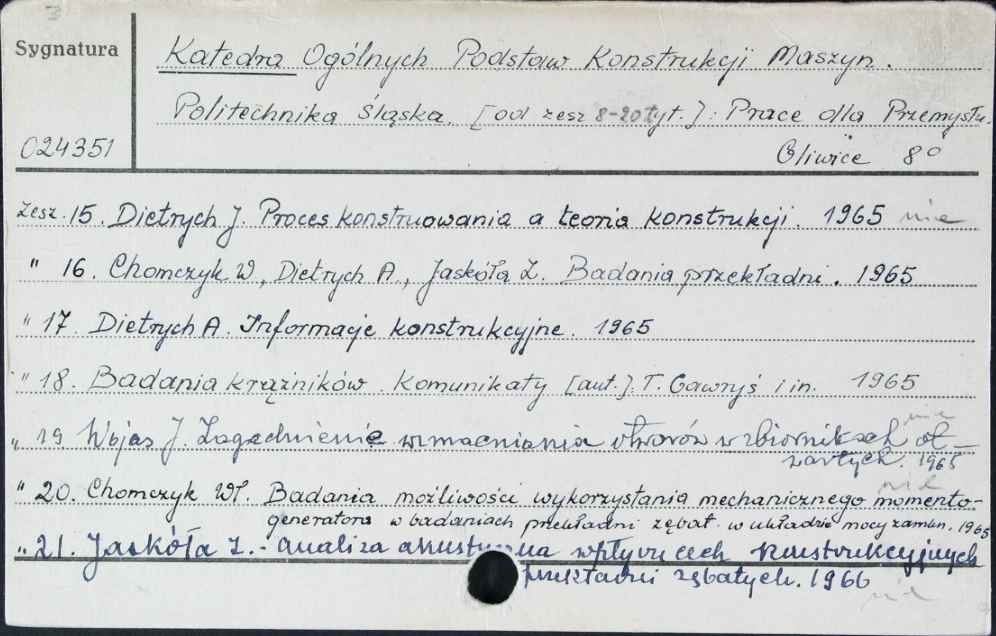 Sygnatura
Katedra Ogólnych Podstaw Konstrukcji Maszyn.
Politechnika Śląska. [od zesz 8-20 tyt.]: Prace dla Przemysłu.
024351
Gliwice 8°
zesz. 15. Dietrych J. Proces konstruowania a teoria konstrukcji. 1965 nie
" 16. Chomczyk W., Dietrych A., Jaskóła Z. Badania przekładni. 1965
" 17. Dietrych A. Informacje konstrukcyjne. 1965
" 18. Badania krążników. Komunikaty [aut.]. T. Gawryś i in. 1965
nie
" 19 Wojas J. Zagadnienie wzmacniania otworów w zbiornikach ot-
wartych. 1965
nie
" 20. Chomczyk Wł. Badania możliwości wykorzystania mechanicznego momento-
generatora w badaniach przekładni zębat. w układzie mocy zamkn. 1965
" 21. Jaskóła Z. - Analiza akustyczna wpływu cech konstrukcyjnych
przekładni zębatych. 1966
nie